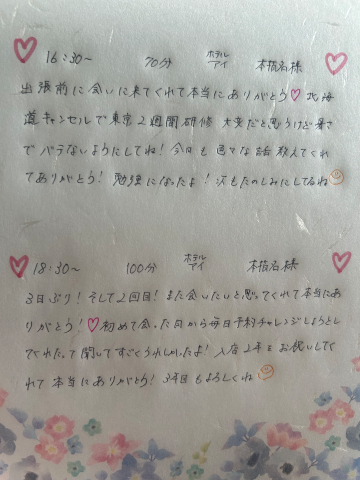 16:30~ 70分 ホテル アイ 本指名様
出張前に会いに来てくれて本当にありがとう♡北海
道キャンセルで東京2週間研修 大変だと思うけど暑さ
でバテないようにしてね!今日も色々な話教えてくれ
てありがとう!勉強になったよ!次もたのしみにしてるね
18:30~ 100分 ホテル アイ 本指名様
3日ぶり!そして2回目!また会いたいと思ってくれて本当にあ
りがとう!♡初めて会った日から毎日予約チャレンジしようとし
てくれたって聞いてすごくうれしかったよ!入店2年もお祝いしてく
れて本当にありがとう!3年目もよろしくね